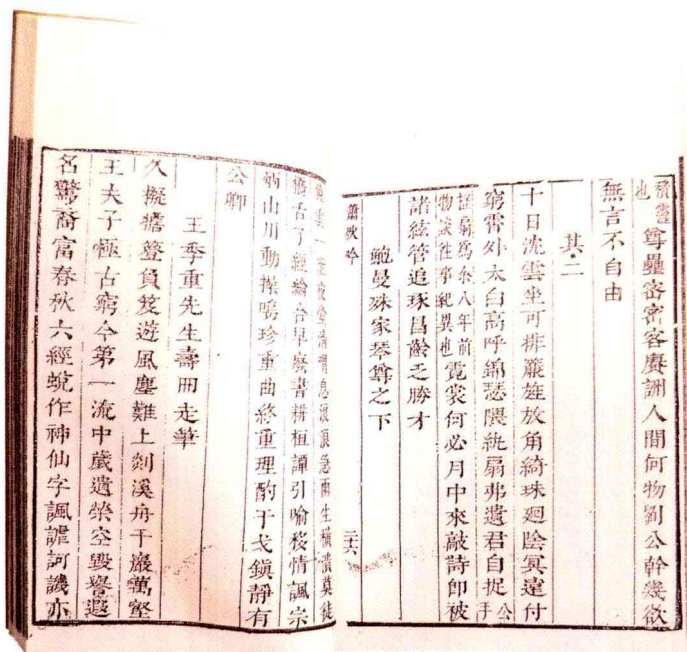 積靈
也
尊罍密密客賡詶人間何物劉公幹幾欲
無言不自由
其二
十日沈雲坐可排叢旌放角綺珠廻陰冥遠付
窮霄外太白高呼錦瑟隈紈扇弗遺君自捉公手
書扇爲余八年前
物談往事紀異也
霓裳何必月中來敲詩即被
諸絃管追琢昌齡乏勝才
鮑曼殊家琴尊之下
蕭秋吟
二十六
雲一
夜堂清
息
浪急雨生橫潰莫徒
舌了經綸合早廢書耕桓譚引喻移情諷宗
炳山川動操鳴珍重曲終重理酌干戈鎭靜有
公卿
王季重先生壽冊走筆
久擬擔簦負笈遊風塵難上剡溪舟千巖萬壑
王夫子極古窮今第一流中歲遺榮空毀譽遐
名驚裔富春秋六經蛻作神仙字諷謔訶譏亦